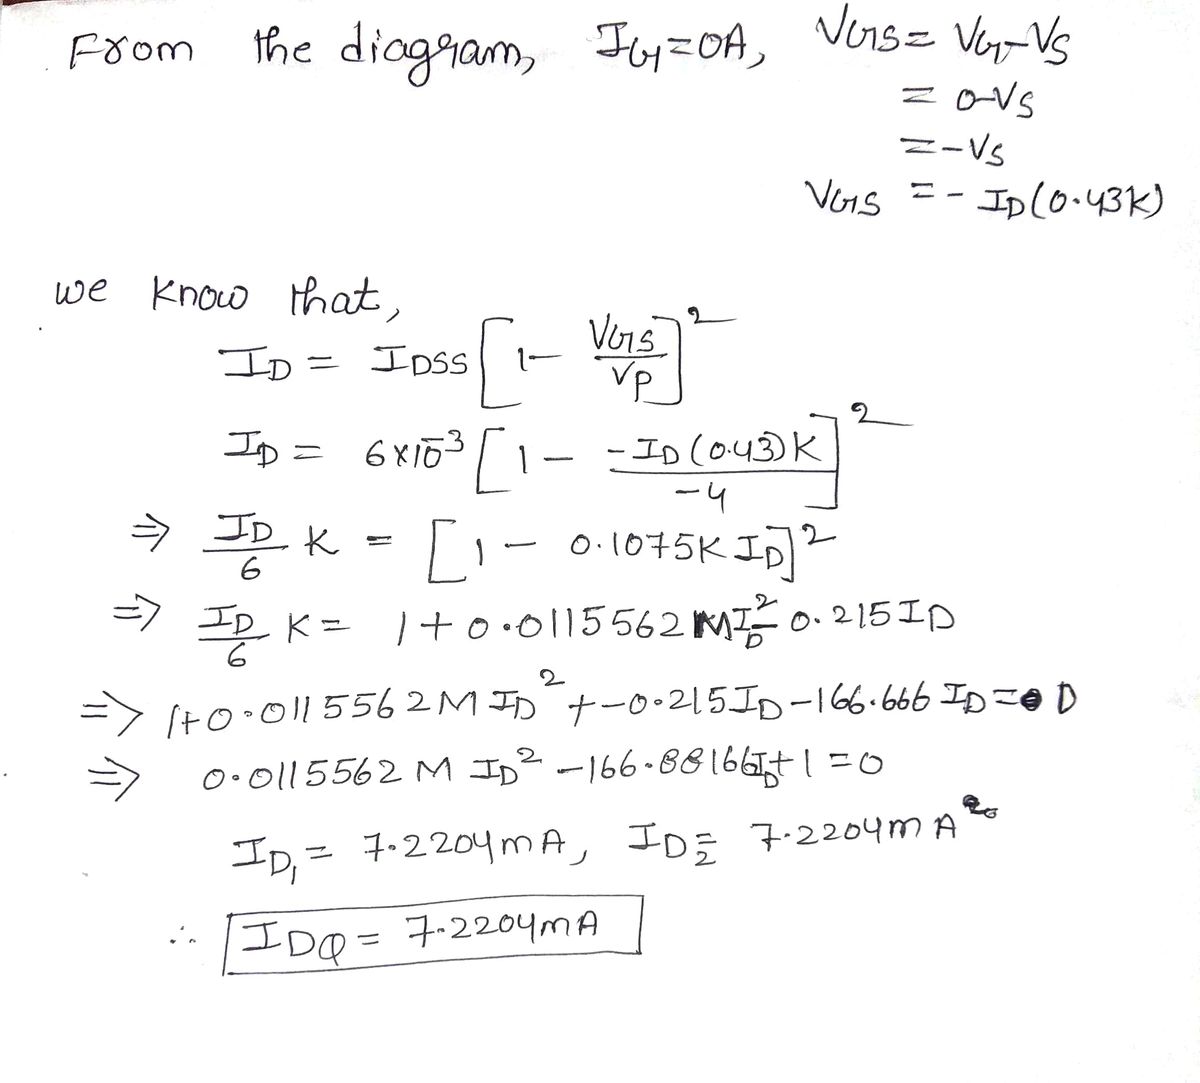 From the diagram, IG=0A, VGS= VG-VS
= 0-VS
=-VS
VGS = - ID(0.43K)
we know that,
ID = IDSS [1- VGS/VP]²
ID = 6×10⁻³ [1- -ID(0.43)K/-4]²
⇒ ID/6 K = [1- 0.1075K ID]²
⇒ ID/6 K = 1+0.0115562MID²-0.215ID
⇒ 1+0.0115562M ID²+-0.215ID-166.666 ID=0
⇒ 0.0115562 M ID² -166.88166ID+1=0
ID₁= 7.2204mA, ID₂= 7.2204mA
∴ IDQ= 7.2204mA